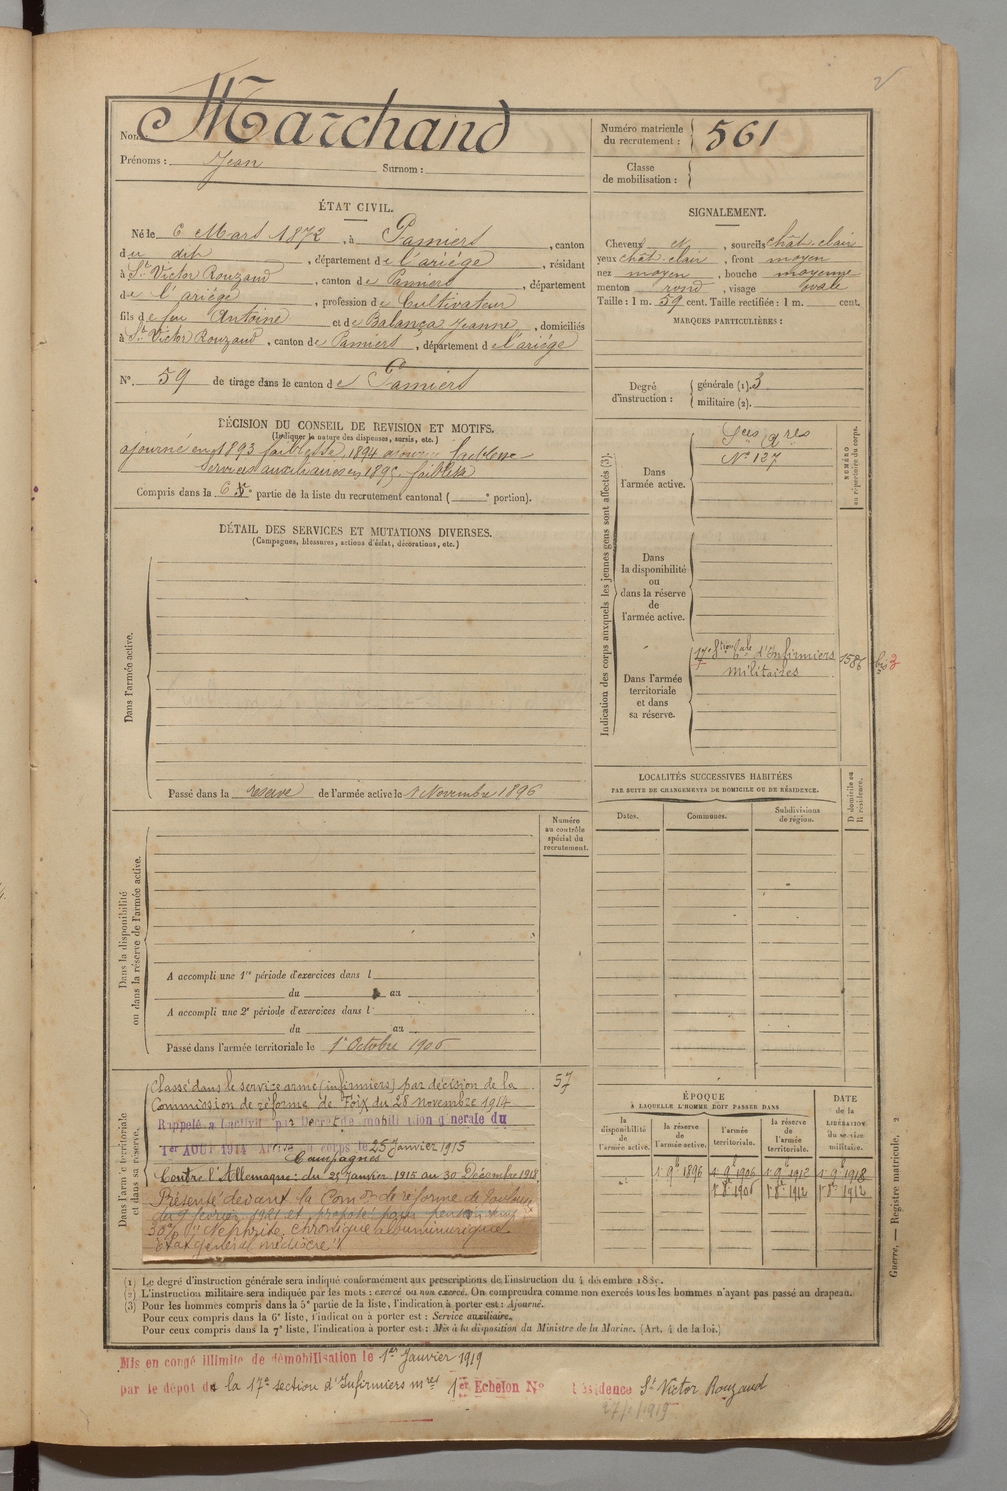 Nom: Marchand
Prénoms : Jean Surnom :
Numéro matricule du recrutement : 561
Classe de mobilisation :
ÉTAT CIVIL.
Né le 6 Mars 1872, à Pamiers, canton
du dit, département de l'ariége, résidant
à St Victor Rouzaud, canton de Pamiers, département
de l'ariége, profession de Cultivateur
fils de feu Antoine et de Balança Jeanne, domiciliés
à St Victor Rouzaud, canton de Pamiers, département de l'ariége
No. 59 de tirage dans le canton de Pamiers
SIGNALEMENT.
Cheveux N, sourcils chât. clair
yeux chât. clair, front moyen
nez moyen, bouche moyenne
menton rond, visage ovale
Taille : 1 m. 59 cent. Taille rectifiée : 1 m. cent.
MARQUES PARTICULIÈRES :
Degré d'instruction : générale (1). 3
militaire (2).
DÉCISION DU CONSEIL DE REVISION ET MOTIFS.
(Indiquer la nature des dispenses, sursis, etc.)
ajourné en 1893 faiblesse, 1894 ajourné faiblesse
Services auxiliaires en 1895 faiblesse
Compris dans la 6e partie de la liste du recrutement cantonal ( e portion).
DÉTAIL DES SERVICES ET MUTATIONS DIVERSES.
(Campagnes, blessures, actions d'éclat, décorations, etc.)
Dans l'armée active.
Passé dans la réserve de l'armée active le 1 Novembre 1896
Indication des corps auxquels les jeunes gens sont affectés (3).
NUMÉRO au répertoire du corps.
Dans l'armée active.
Sces Qres
No 127
Dans la disponibilité ou dans la réserve de l'armée active.
Dans l'armée territoriale et dans sa réserve.
17e Stion d'Infirmiers
militaires
1586
bis 3
LOCALITÉS SUCCESSIVES HABITÉES
PAR SUITE DE CHANGEMENTS DE DOMICILE OU DE RÉSIDENCE.
Dates. Communes. Subdivisions de région. D domicile ou R résidence.
Dans la disponibilité ou dans la réserve de l'armée active.
Numéro au contrôle spécial du recrutement.
A accompli une 1re période d'exercices dans l
du au
A accompli une 2e période d'exercices dans l
du au
Passé dans l'armée territoriale le 1er Octobre 1906
57
Dans l'armée territoriale et dans sa réserve.
Classé dans le service armé (infirmiers) par décision de la
Commission de réforme de Foix du 28 novembre 1914
Rappelé à l'activité par Décret de mobilisation générale du
1er AOUT 1914 Arrivé au corps le 25 Janvier 1915
Campagnes
Contre l'Allemagne : du 25 Janvier 1915 au 30 Décembre 1918
Présenté devant la Comon de réforme de Toulouse
du 9 février 1921 et proposé pour pension
30% Néphrite chronique albuminurique
état général médiocre
ÉPOQUE
A LAQUELLE L'HOMME DOIT PASSER DANS
la disponibilité de l'armée active. la réserve de l'armée active. l'armée territoriale. la réserve de l'armée territoriale.
DATE de la LIBÉRATION du service militaire.
1er 9bre 1896 1er 9bre 1906 1er 9bre 1912 1er 9bre 1918
1er 8bre 1906 1er 8bre 1912
(1) Le degré d'instruction générale sera indiqué conformément aux prescriptions de l'instruction du 4 décembre 1889.
(2) L'instruction militaire sera indiquée par les mots : exercé ou non exercé. On comprendra comme non exercés tous les hommes n'ayant pas passé au drapeau.
(3) Pour les hommes compris dans la 5e partie de la liste, l'indication à porter est : Ajourné.
Pour ceux compris dans la 6e liste, l'indication à porter est : Service auxiliaire.
Pour ceux compris dans la 7e liste, l'indication à porter est : Mis à la disposition du Ministre de la Marine. (Art. 4 de la loi.)
Guerre. — Registre matricule. 2
Mis en congé illimité de démobilisation le 1er Janvier 1919
par le dépôt de la 17e section d'Infirmiers mres 1er Echelon No Résidence St Victor Rouzaud
27/1/1919